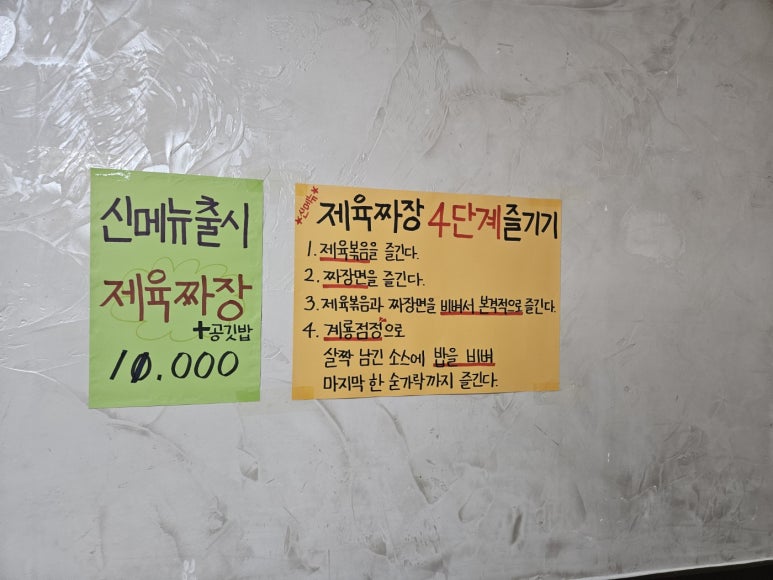 신메뉴출시
제육짜장
+공깃밥
10.000
★신메뉴★
제육짜장 4단계즐기기
1. 제육볶음을 즐긴다.
2. 짜장면을 즐긴다.
3. 제육볶음과 짜장면을 비벼서 본격적으로 즐긴다.
4. 계룡점정으로
살짝 남긴 소스에 밥을 비벼
마지막 한 숟가락까지 즐긴다.